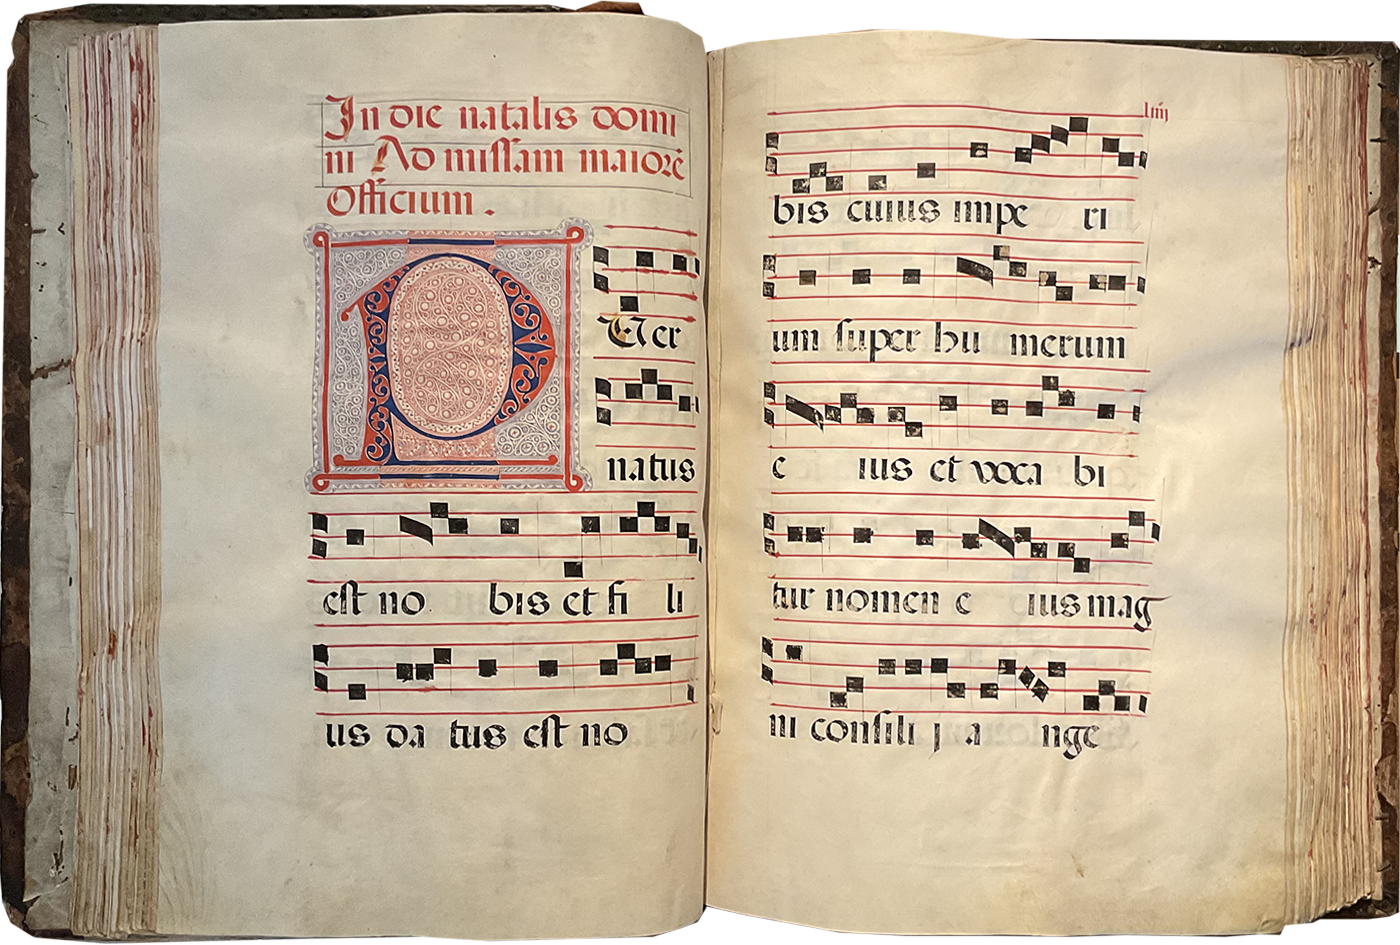 In die natalis domi
ni Ad missam maiorē
Officium.
P Uer
natus
est no bis et fi li
us da tus est no
liiij
bis cuius impe ri
um super hu merum
e ius et voca bi
tur nomen e ius mag
ni consili j a nge